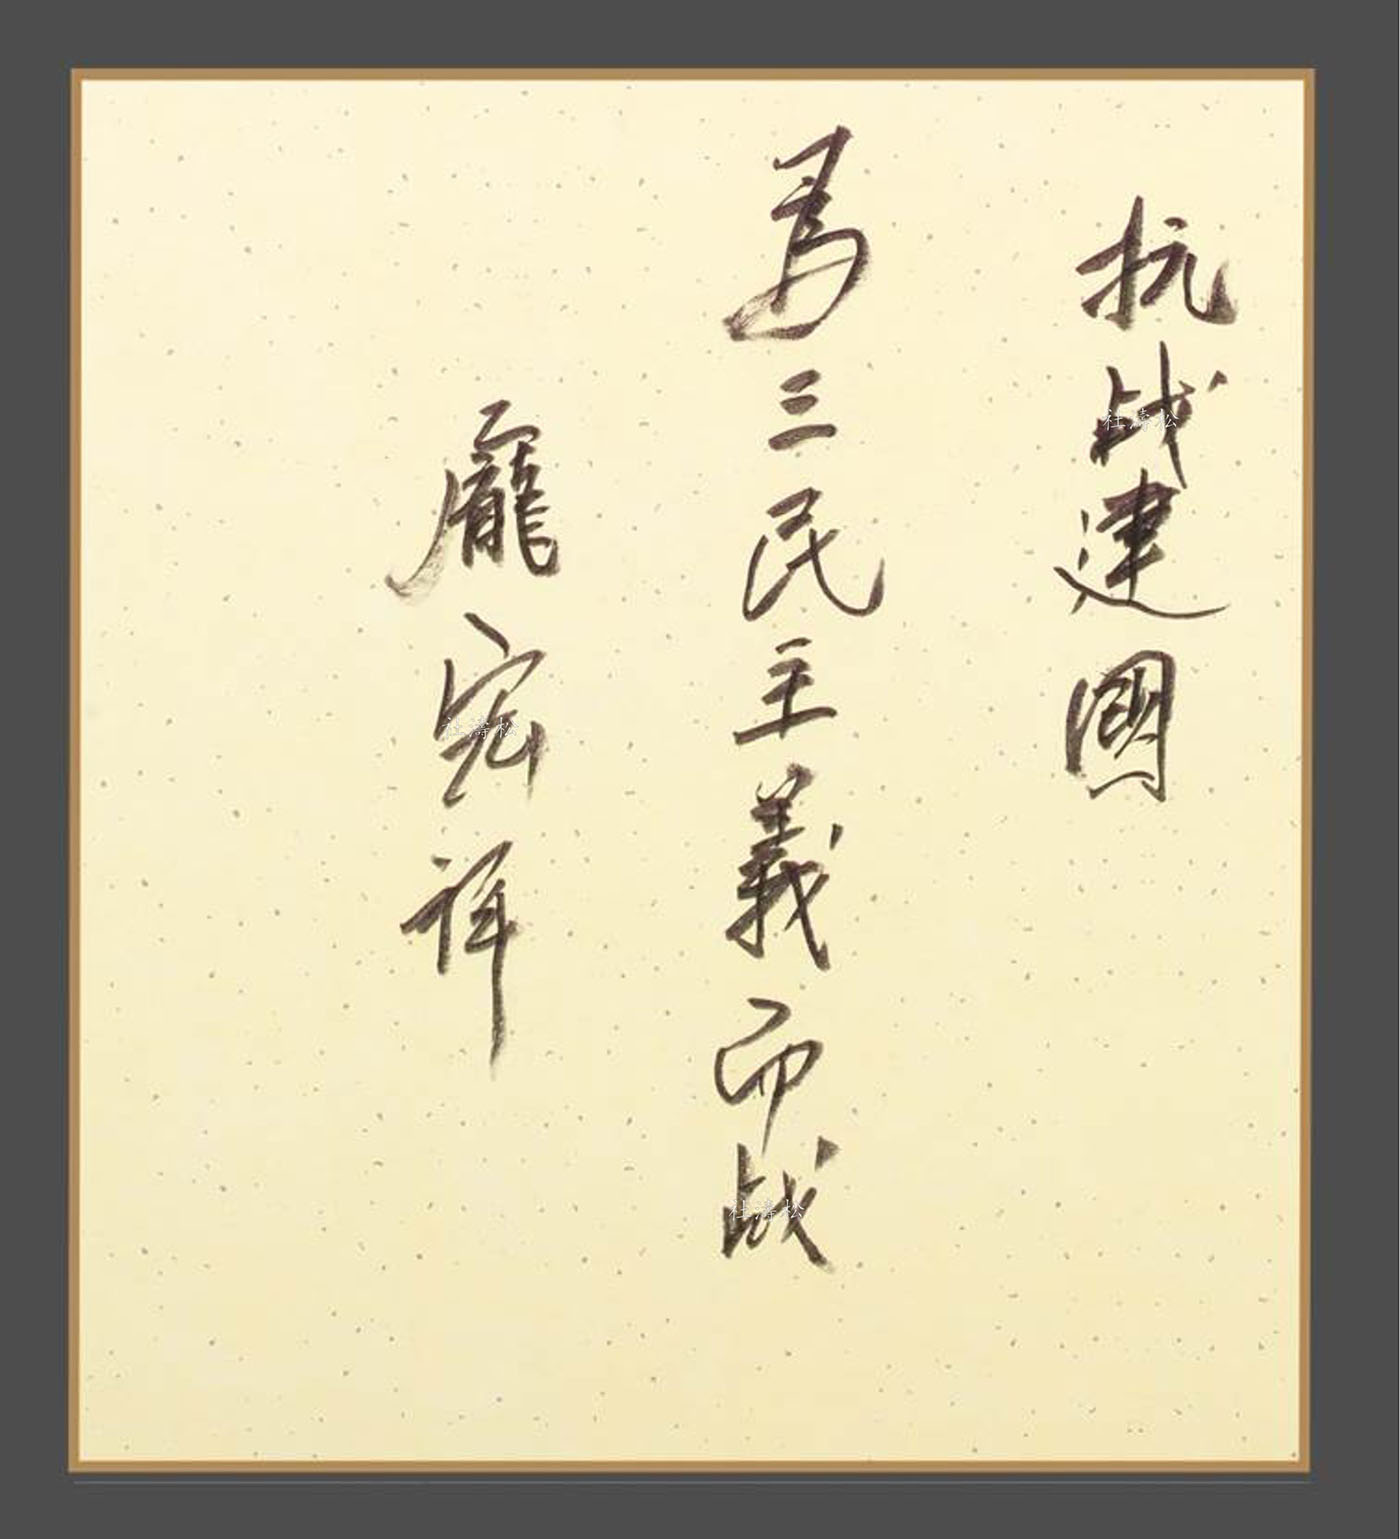 抗战建國
為三民主義而战
龐宏祥
杜濤松
杜濤松
杜濤松